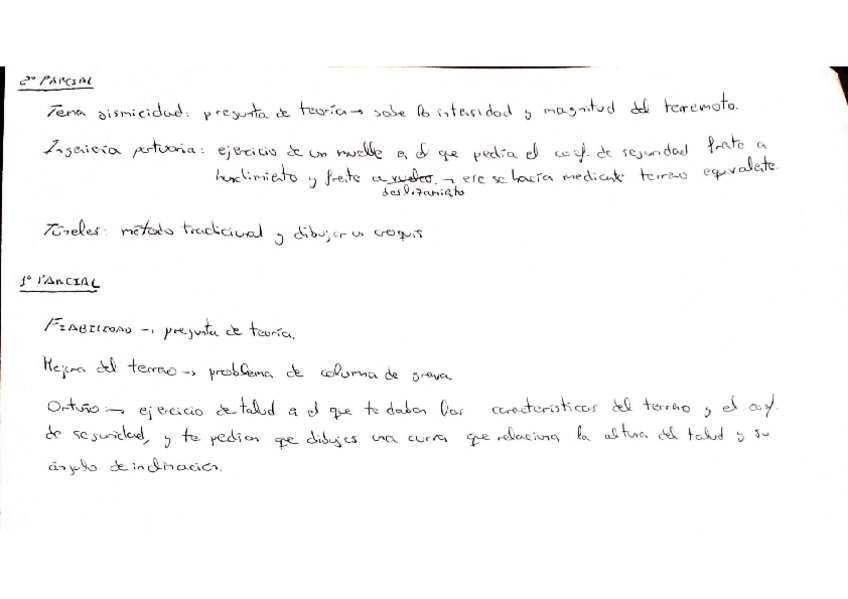 2º PARCIAL
Tema sismicidad: pregunta de teoría → sobre la intensidad y magnitud del terremoto.
Ingeniería portuaria: ejercicio de un muelle en el que pedía el coef. de seguridad frente a
hundimiento y frente a vuelco → ese se hacía mediante terreno equivalente.
deslizamiento
Túneles: método tradicional y dibujar un croquis
1º PARCIAL
FIABILIDAD → pregunta de teoría.
Mejora del terreno → problema de columna de grava.
Ortuño → ejercicio de talud en el que te daban las características del terreno y el coef.
de seguridad, y te pedían que dibujes una curva que relaciona la altura del talud y su
ángulo de inclinación.